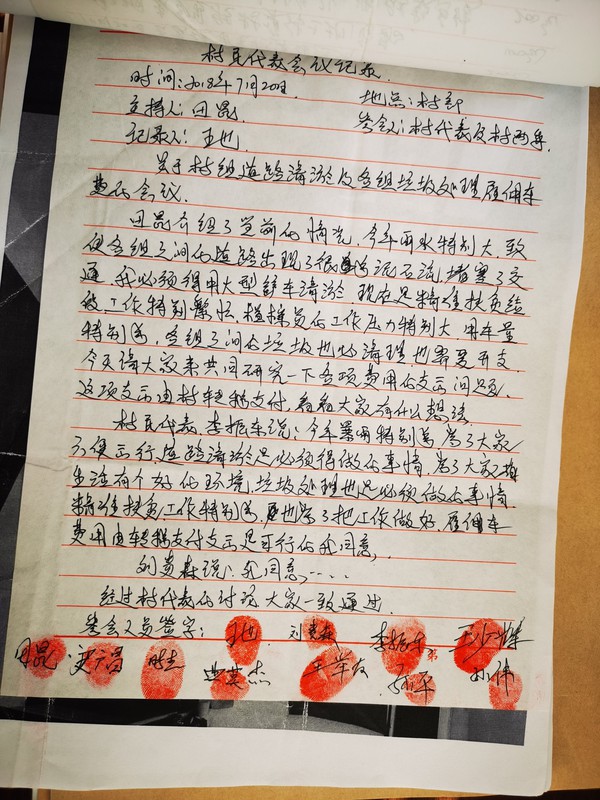 村民代表会议记录.
时间:2018年7月20日 地点:村部
主持人:田昆 参会人:村代表及村两委.
记录人:王也
关于村组道路清淤及各组垃圾处理雇佣车
费的会议.
田昆介绍了当前的情况,今年雨水特别大,致
使各组之间的道路出现了很多泥石流,堵塞了交
通,我必须得用大型铲车清淤 现在是精准扶贫
工作特别繁忙 工作压力特别大.用车量
特别多,各组之间的垃圾也必清理也需要开支.
今天请大家来共同研究一下各项费用的支出问题.
这项支出由村转移支付,看看大家有什么想法.
村民代表李振东说:今年雨特别多,为了大家
方便出行,道路清淤是必须得做的事情,为了大家
生活有个好的环境,垃圾处理也是必须做的事情.
精准扶贫工作特别多,也是为了把工作做好,雇佣车
费用由转移支付支出是可行的 我同意.
说:我同意.....
经过村代表的讨论 大家一致通过.
参会人员签字: 王也 李振东
田昆